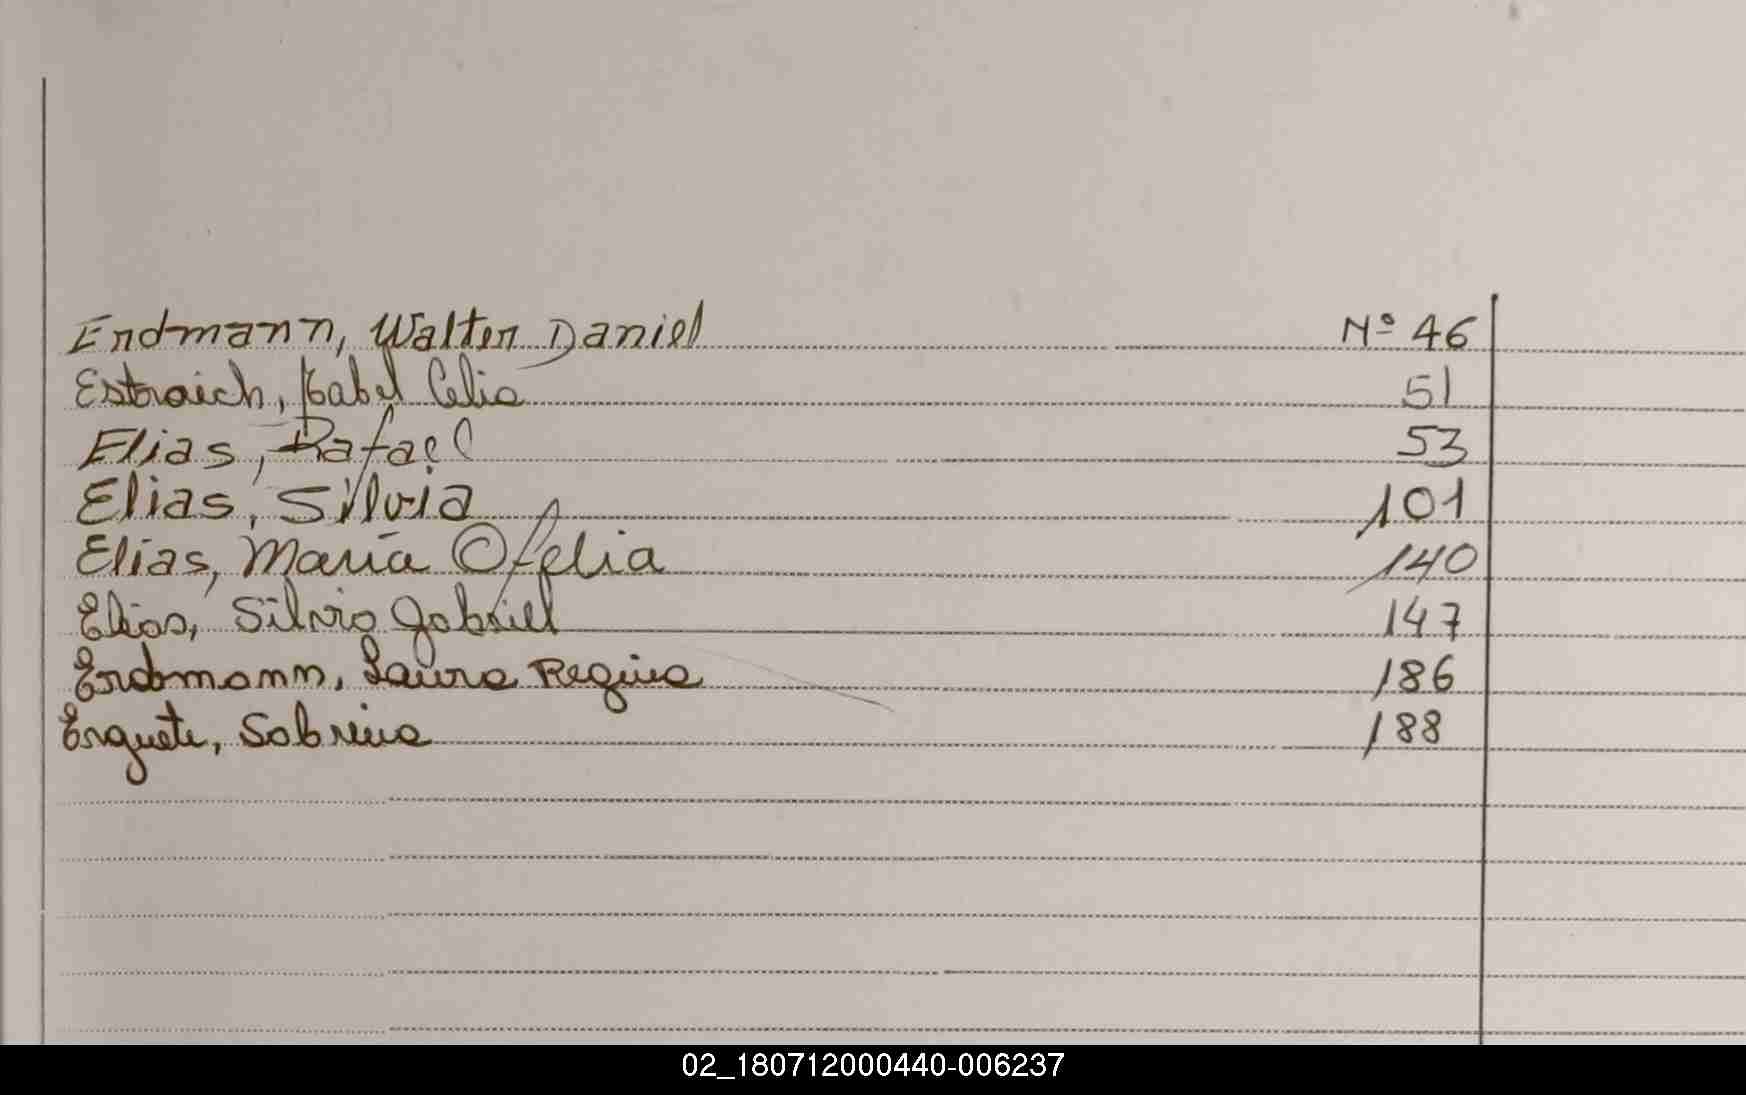 Erdmann, Walter Daniel Nº 46
Estraich, Isabel Celia 51
Elias, Rafael 53
Elias, Silvia 101
Elias, María Ofelia 140
Elias, Silvio Gabriel 147
Erdmann, Laura Regina 186
Erquete, Sabrina 188
02_180712000440-006237